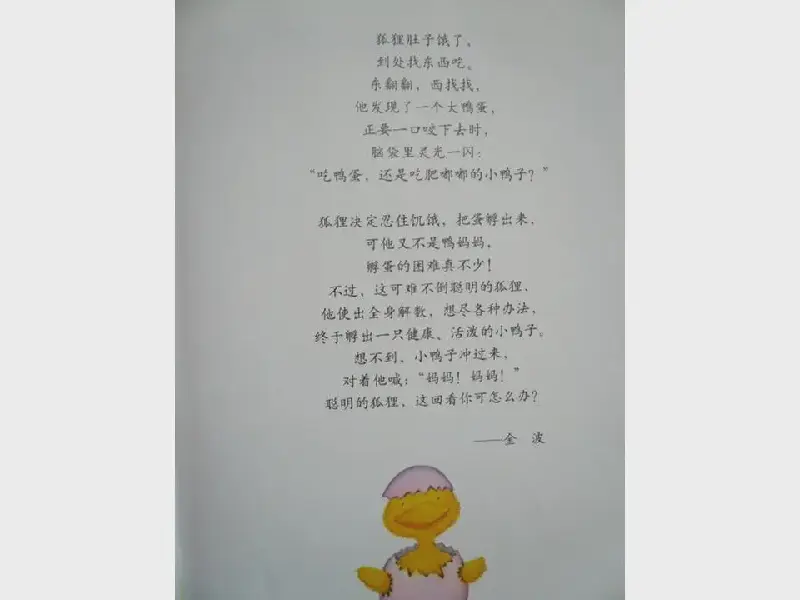 狐狸肚子饿了，
到处找东西吃。
东翻翻，西找找，
他发现了一个大鸭蛋，
正要一口咬下去时，
脑袋里灵光一闪：
“吃鸭蛋，还是吃肥嘟嘟的小鸭子？”
狐狸决定忍住饥饿，把蛋孵出来，
可他又不是鸭妈妈，
孵蛋的困难真不少！
不过，这可难不倒聪明的狐狸，
他使出全身解数，想尽各种办法，
终于孵出一只健康、活泼的小鸭子。
想不到，小鸭子冲过来，
对着他喊：“妈妈！妈妈！”
聪明的狐狸，这回看你可怎么办？
——金 波